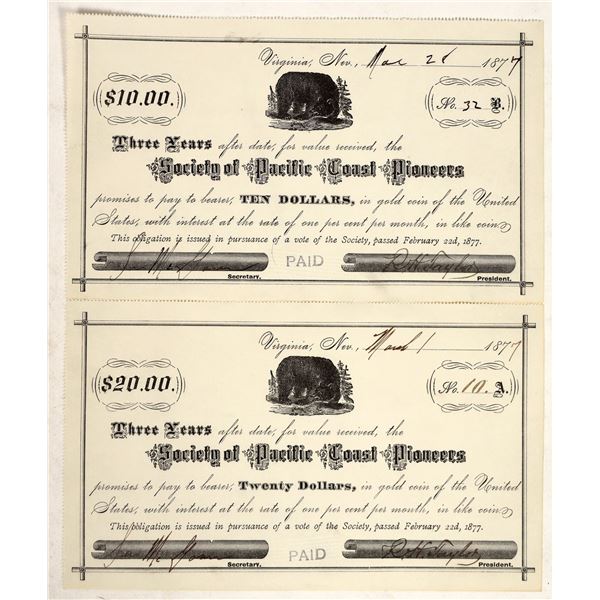 Virginia, Nev., Mar 28 1877
$10.00.
No. 32 B.
Three Years after date, for value received, the
Society of Pacific Coast Pioneers
promises to pay to bearer, TEN DOLLARS, in gold coin of the United
States, with interest at the rate of one per cent per month, in like coin
This obligation is issued in pursuance of a vote of the Society, passed February 22d, 1877.
PAID R.H. Taylor
Secretary. President.
Virginia, Nev., March 1 1877
$20.00.
No. 10 A.
Three Years after date, for value received, the
Society of Pacific Coast Pioneers
promises to pay to bearer, Twenty Dollars, in gold coin of the United
States, with interest at the rate of one per cent per month, in like coin
This obligation is issued in pursuance of a vote of the Society, passed February 22d, 1877.
PAID R.H. Taylor
Secretary. President.